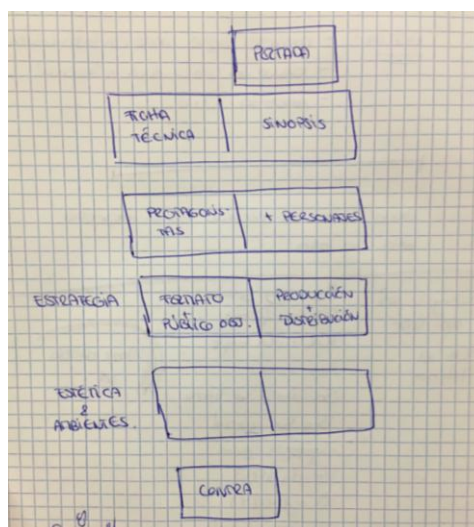 PORTADA
FICHA
TÉCNICA
SINOPSIS
PROTAGONIS-
TAS
+ PERSONAJES
ESTRATEGIA
FORMATO
+
PÚBLICO OBJ.
PRODUCCIÓN
+
DISTRIBUCIÓN
ESTÉTICA
&
AMBIENTES.
CONTRA